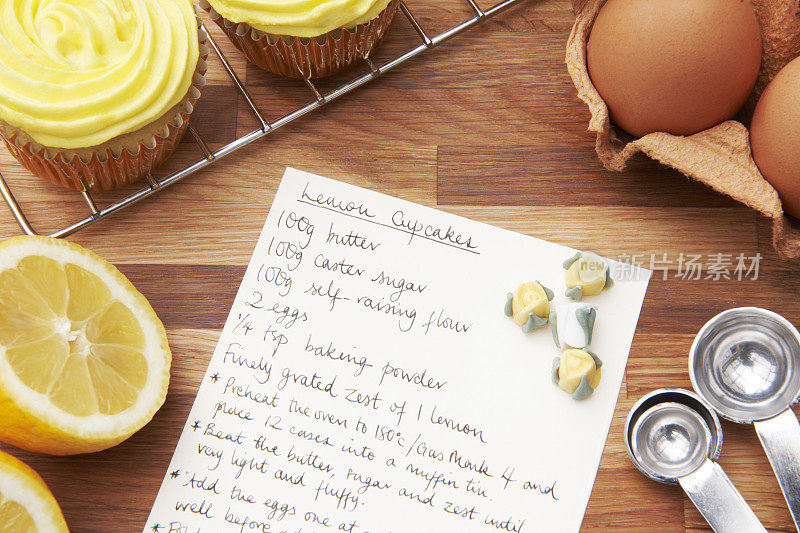 Lemon Cupcakes
100g butter
100g caster sugar
100g self-raising flour
2 eggs
1/4 tsp baking powder
Finely grated zest of 1 lemon
* Preheat the oven to 180°C/Gas Mark 4 and
place 12 cases into a muffin tin.
* Beat the butter, sugar and zest until
very light and fluffy.
* Add the eggs one at a
well before
* Fold
新浪图片